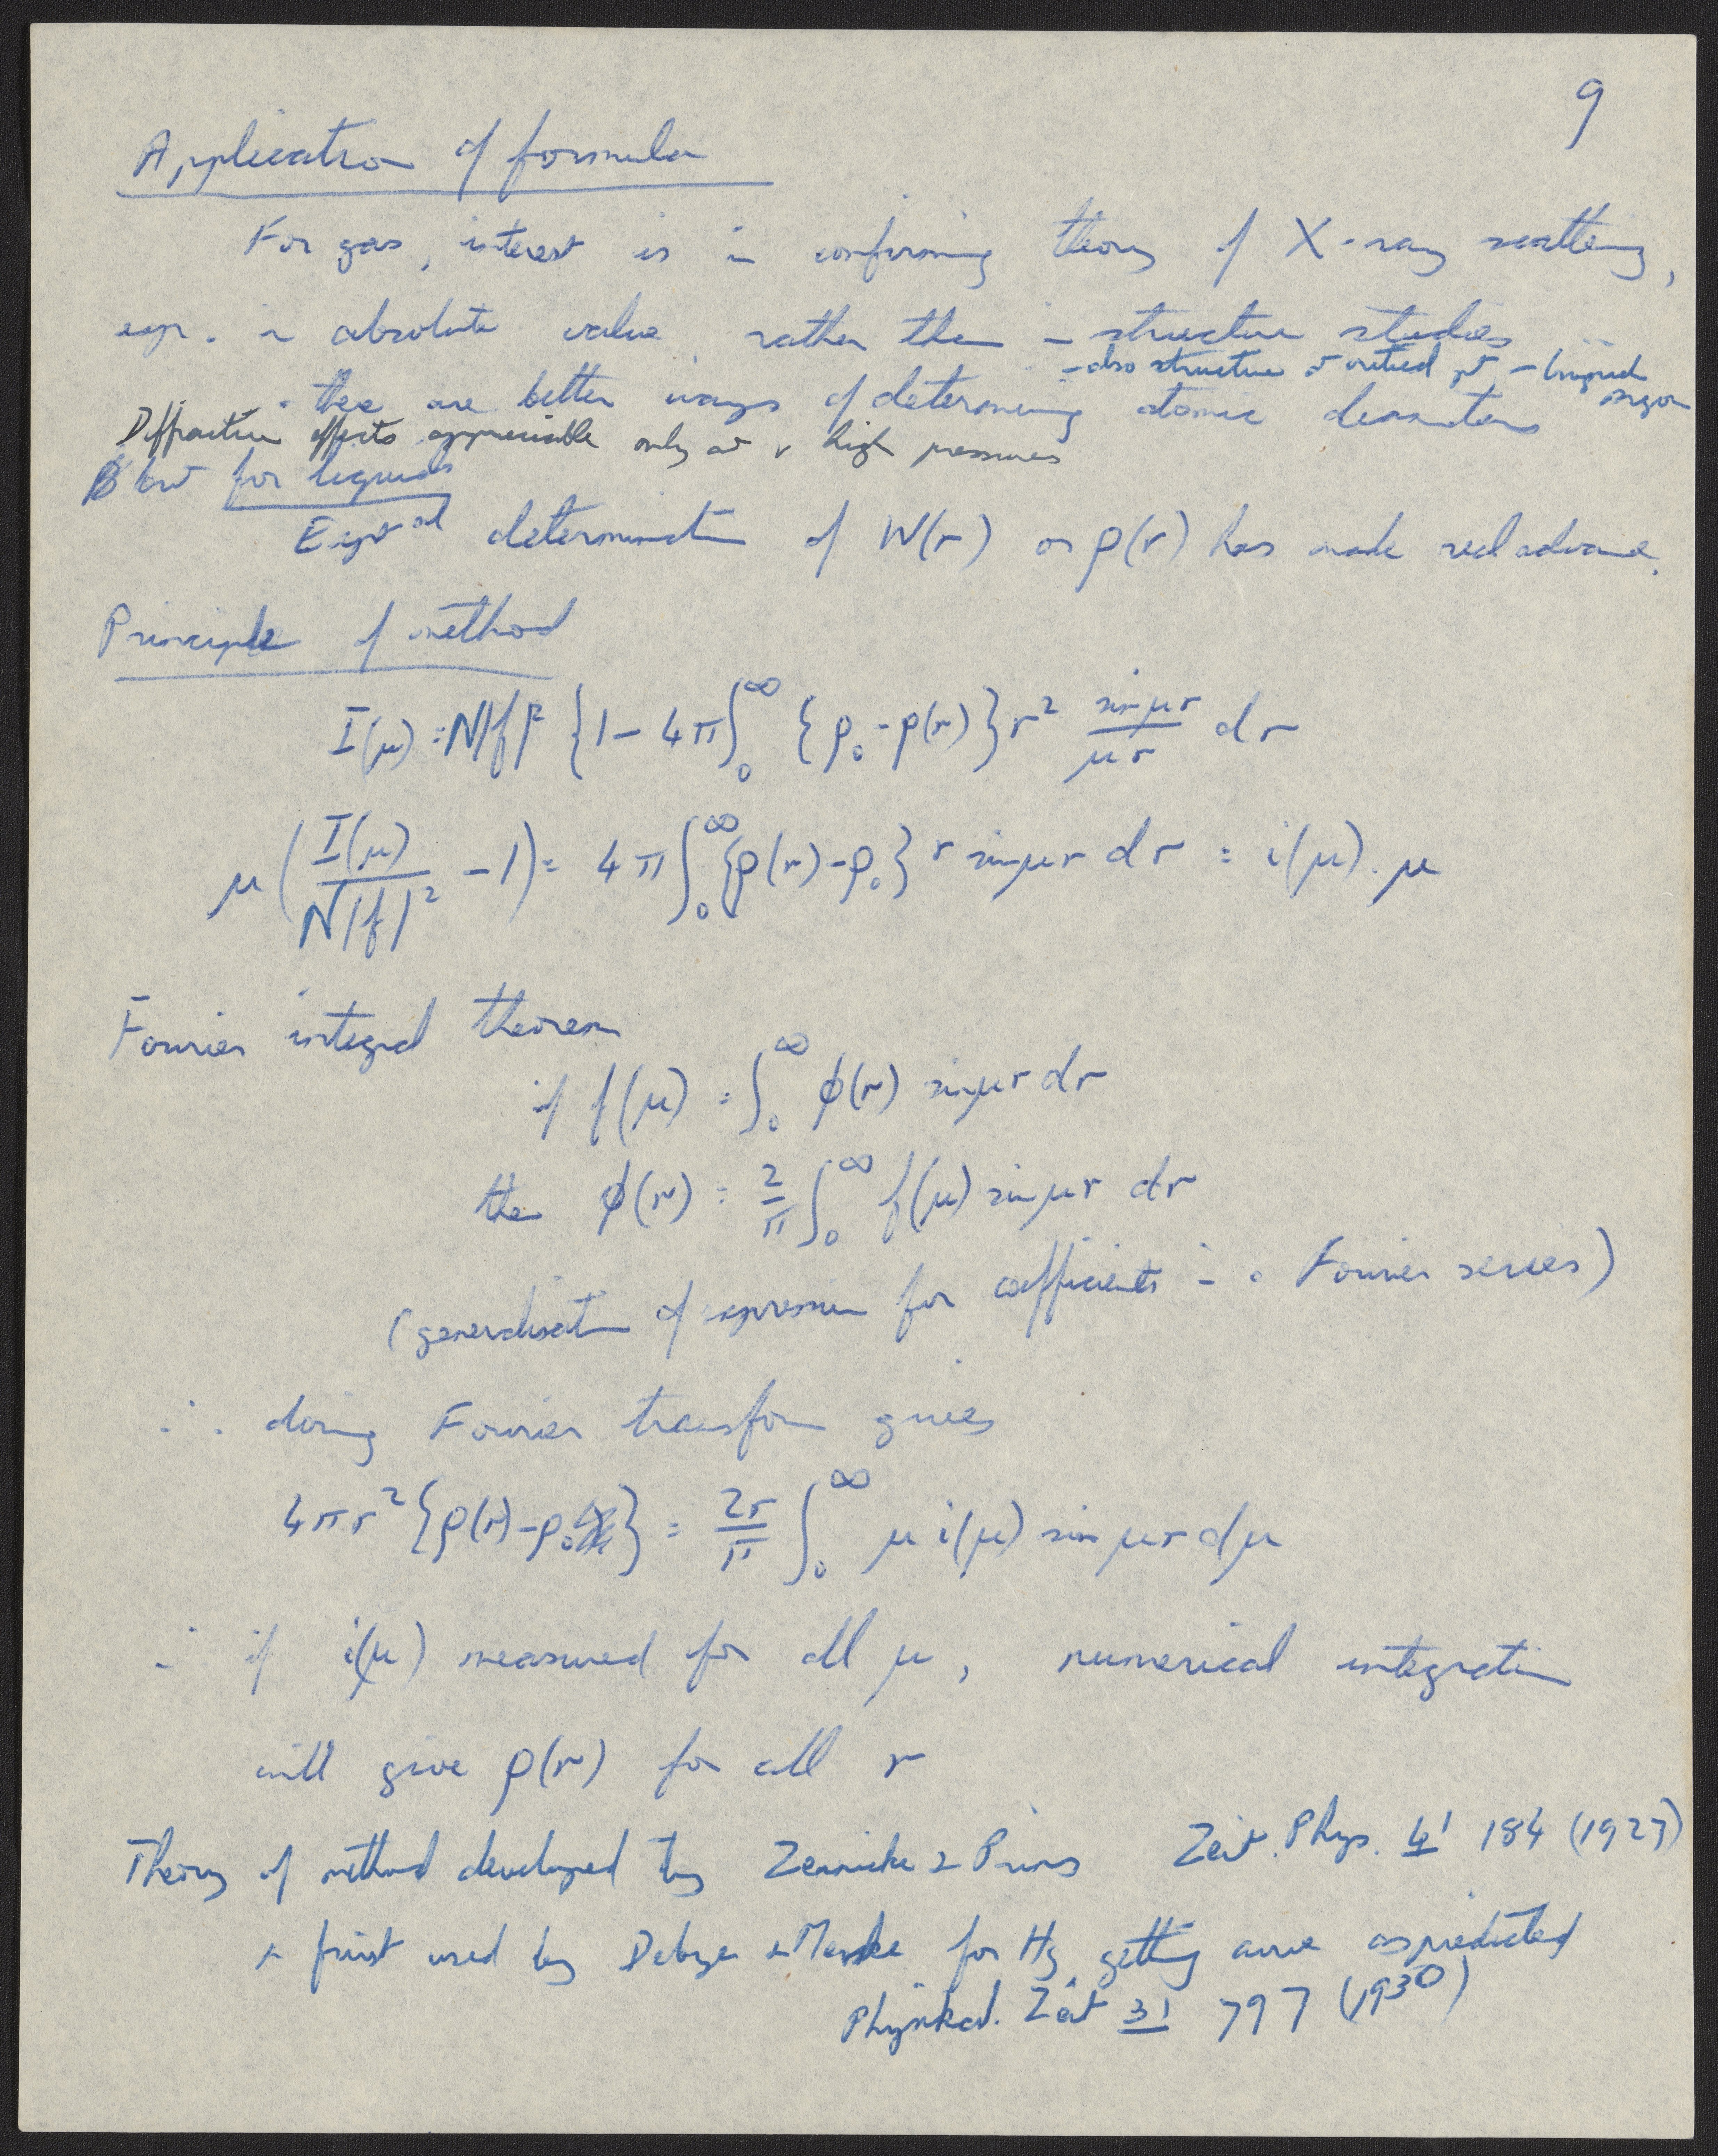 9
Application of formula
For gas, interest is in confirming theory of X-ray scattering,
esp. in absolute value, rather than in structure studies
- also structure at critical pt - liquid argon
- there are better ways of determining atomic diameters
Diffraction effects appreciable only at v high pressures
But for liquids
Expt^al determination of W(r) or ρ(r) has made real advance.
Principle of method
I(μ) = N|f|² {1 - 4π ∫₀^∞ {ρ₀ - ρ(r)} r² (sin μr)/(μr) dr
μ (I(μ)/(N|f|²) - 1) = 4π ∫₀^∞ {ρ(r) - ρ₀} r sin μr dr = i(μ). μ
Fourier integral theorem
if f(μ) = ∫₀^∞ φ(r) sin μr dr
then φ(r) = 2/π ∫₀^∞ f(μ) sin μr dr
(generalisation of expression for coefficients in a Fourier series)
∴ doing Fourier transform gives
4πr² {ρ(r) - ρ₀} = 2r/π ∫₀^∞ μ i(μ) sin μr dμ
∴ if i(μ) measured for all μ, numerical integration
will give ρ(r) for all r
Theory of method developed by Zernicke & Prins Zeit. Phys. 41 184 (1927)
& first used by Debye & Menke for Hg getting curve as predicted
Physikal. Zeit 31 797 (1930)